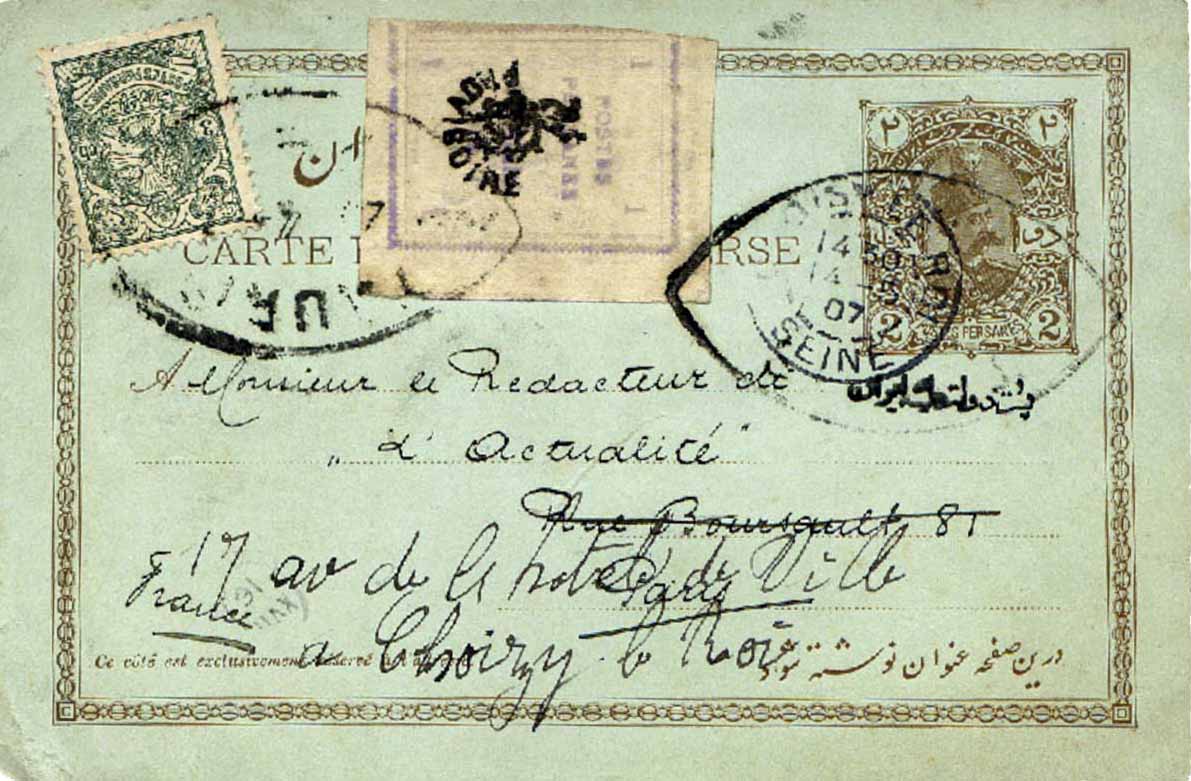 PROVISOIRE
POSTES PERSANES
1 1
1
ران
CARTE RSE
۲ ۲
2 2
CHOISY-LE-ROI
14 30
14
07
SEINE
پست دولت علیه ایران
A Monsieur le Redacteur de
„L'Actualité"
Rue Boursault 81
Paris
17 av de l'hotel de Ville
France
a Choisy le Roi
Ce côté est exclusivement réservé à l'adresse
درین صفحه عنوان نوشته شود